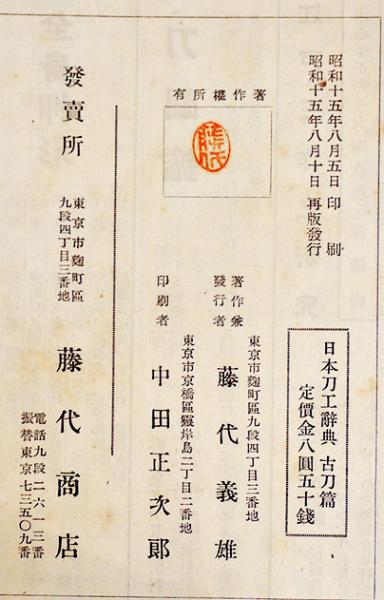 昭和十五年八月五日印刷
昭和十五年八月十日再版發行
日本刀工辭典 古刀篇
定價金八圓五十錢
有所權作著
藤代
東京市麴町區九段四丁目三番地
著作兼
發行者 藤代義雄
東京市京橋區靈岸島二丁目二番地
印刷者 中田正次郞
發賣所
東京市麴町區
九段四丁目三番地
藤代商店
電話九段二六一三番
振替東京七三五〇九番